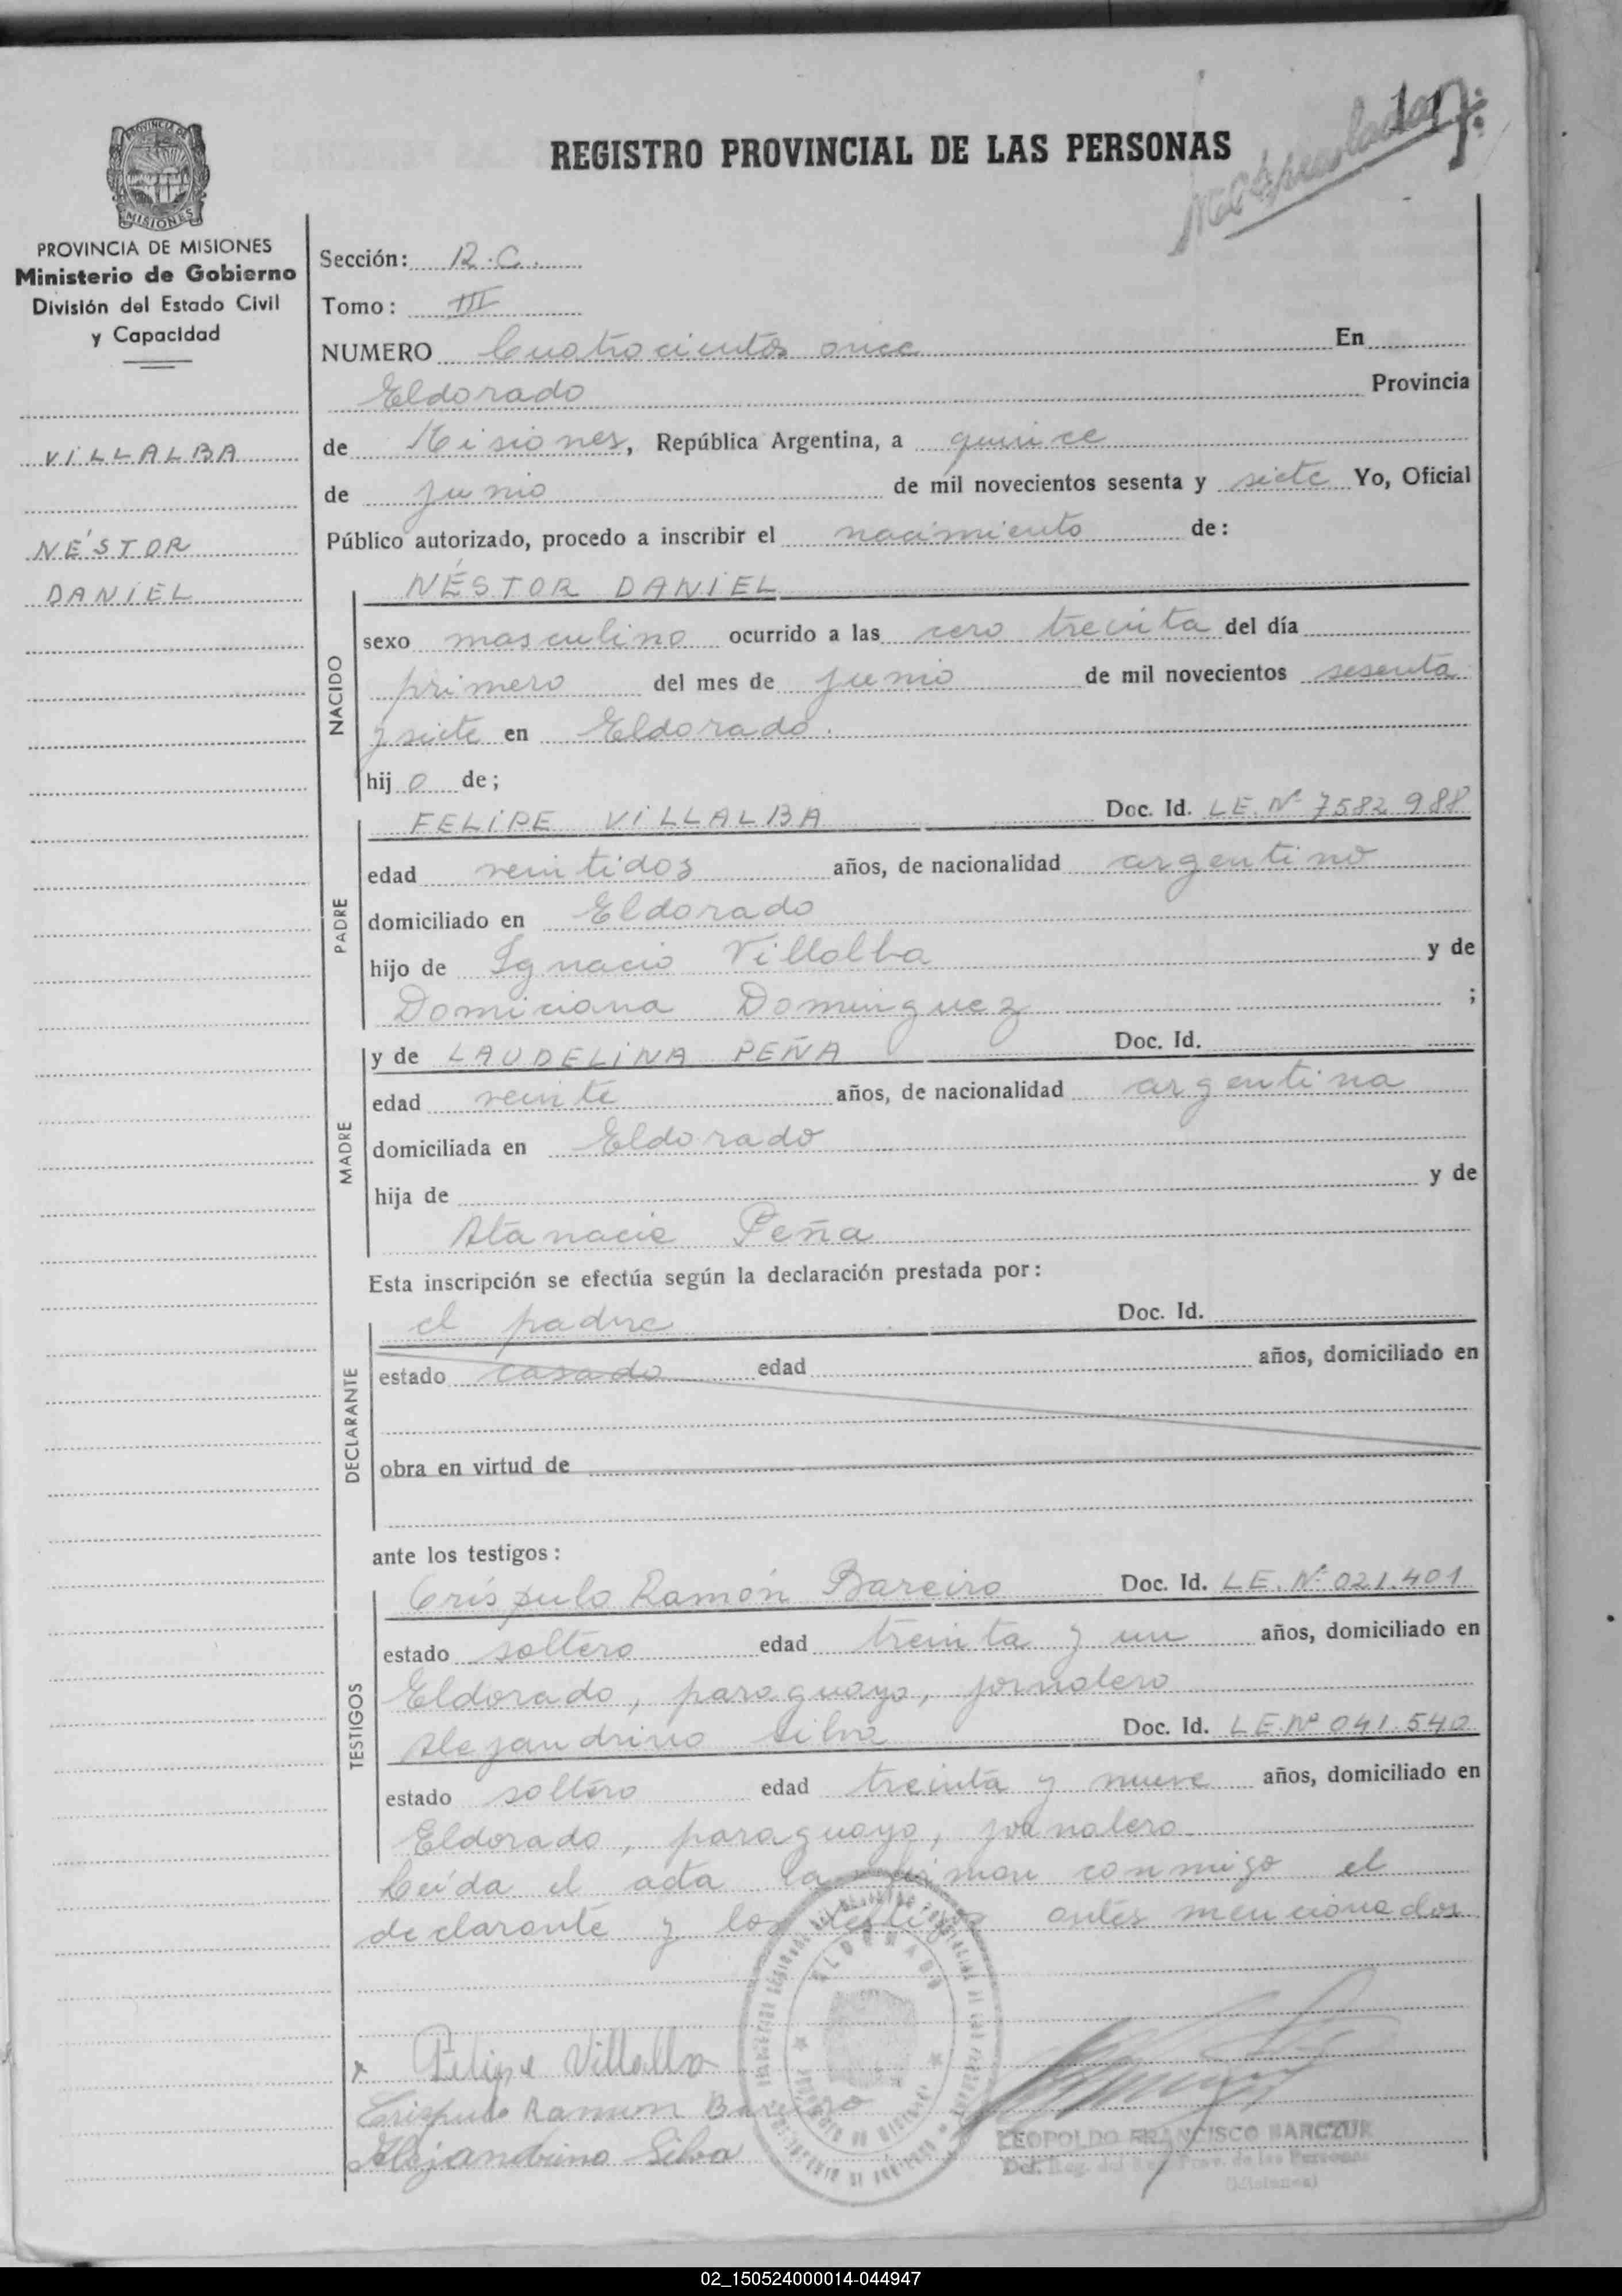 REGISTRO PROVINCIAL DE LAS PERSONAS
PROVINCIA DE
MISIONES
PROVINCIA DE MISIONES
Ministerio de Gobierno
División del Estado Civil
y Capacidad
VILLALBA
NÉSTOR
DANIEL
Sección: R.C.
Tomo: III
NUMERO Cuatrocientos once En
Eldorado Provincia
de Misiones, República Argentina, a quince
de junio de mil novecientos sesenta y siete Yo, Oficial
Público autorizado, procedo a inscribir el nacimiento de:
NACIDO
NÉSTOR DANIEL
sexo masculino ocurrido a las cero treinta del día
primero del mes de junio de mil novecientos sesenta
y siete en Eldorado.
hij o de;
PADRE
FELIPE VILLALBA Doc. Id. LE. Nº 7582988
edad veintidos años, de nacionalidad argentino
domiciliado en Eldorado
hijo de Ignacio Villalba y de
Domiciana Dominguez ;
MADRE
y de LAUDELINA PEÑA Doc. Id.
edad veinte años, de nacionalidad argentina
domiciliada en Eldorado
hija de y de
Atanacia Peña
Esta inscripción se efectúa según la declaración prestada por:
DECLARANTE
el padre Doc. Id.
estado casado edad años, domiciliado en
obra en virtud de
ante los testigos:
TESTIGOS
Crispulo Ramón Bareiro Doc. Id. LE. Nº 021.401
estado soltero edad treinta y un años, domiciliado en
Eldorado, paraguayo, jornalero
Alejandrino Silva Doc. Id. LE Nº 041.540
estado soltero edad treinta y nueve años, domiciliado en
Eldorado, paraguayo, jornalero
Leída el acta la firman conmigo el
declarante y los testigos antes mencionados
ELDORADO
x Felipe Villalba
Crispulo Ramon Bareiro
Alejandrino Silva
LEOPOLDO FRANCISCO BARCZUK
Prov. de las Personas
(Misiones)
02_150524000014-044947